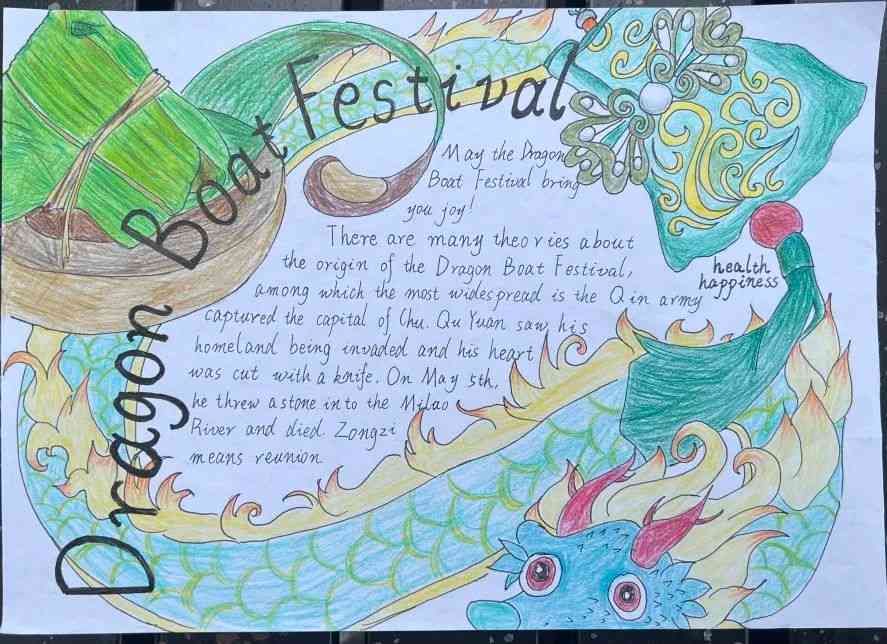 Dragon Boat Festival
May the Dragon
Boat Festival bring
you joy!
There are many theories about
the origin of the Dragon Boat Festival,
among which the most widespread is the Qin army
captured the capital of Chu. Qu Yuan saw his
homeland being invaded and his heart
was cut with a knife. On May 5th,
he threw a stone into the Milao
River and died. Zongzi
means reunion.
health
happiness